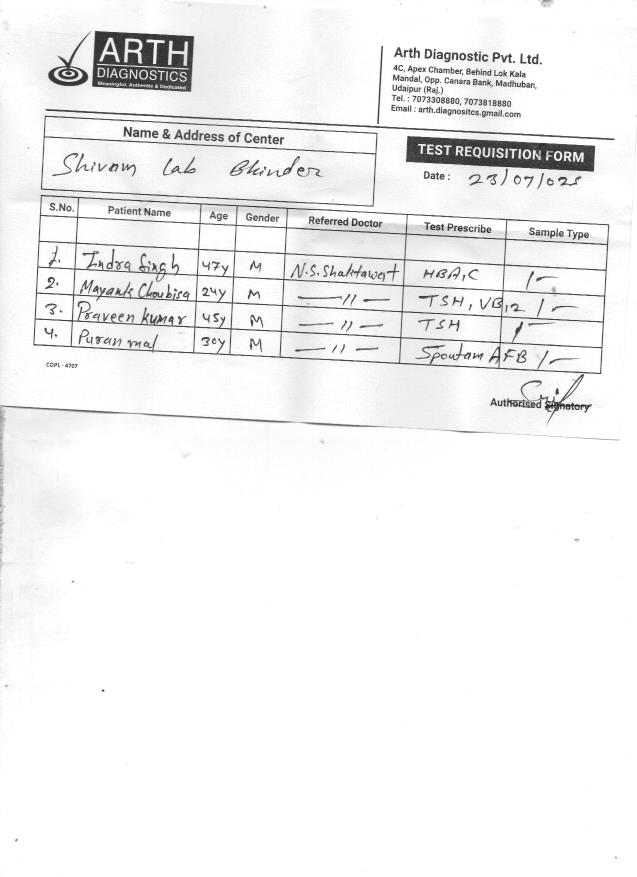 ARTH
DIAGNOSTICS
Meaningful, Authentic & Dedicated
Arth Diagnostic Pvt. Ltd.
4C, Apex Chamber, Behind Lok Kala
Mandal, Opp. Canara Bank, Madhuban,
Udaipur (Raj.)
Tel. : 7073308880, 7073818880
Email : arth.diagnositcs.gmail.com
Name & Address of Center
Shivam Lab Bhinder
TEST REQUISITION FORM
Date : 23/07/025
S.No. Patient Name Age Gender Referred Doctor Test Prescribe Sample Type
1. Indra Singh 47y M N.S. Shaktawat HBA1C 1-
2. Mayank Choubisa 24y M —11— TSH, VB12 1-
3. Praveen Kumar 45y M —11— TSH 1-
4. Puran mal 30y M —11— Spoutam AFB 1-
COPL - 4707
Authorised Signatory